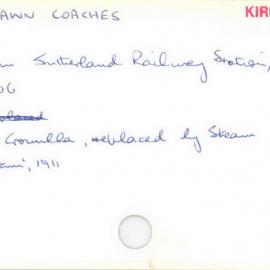 AWN COACHES
KIR
Sutherland Railway Station,
06
Cronulla, replaced by Steam
1911